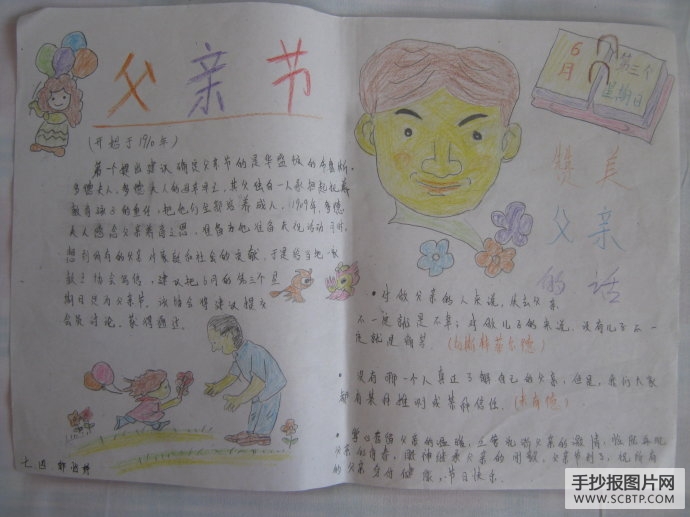 父亲节
(开始于1910年)
第一个提出建议确定父亲节的是华盛顿的布鲁斯·
多德夫人,多德夫人的母亲早亡,其父独自一人承担起抚养
教育孩子的重任,把他们全部培养成人。1909年,多德
夫人感念父亲养育之恩,准备为他准备庆祝活动,同时,
想到所有的父亲对家庭和社会的贡献,于是给当地
教士协会写信,建议把6月的第三个星
期日定为父亲节。该协会将建议提交
会员讨论,获得通过。
6月
第三个
星期日
赞美
父亲
的话
·对做父亲的人来说,失去父亲
不一定就是不幸;对做儿子的来说,没有儿子不一
定就是痛苦。(切斯特菲尔德)
·没有哪一个人真正了解自己的父亲,但是,我们大家
都有某种推测或某种信任。(米南德)
父亲的青春,眼神继承父亲的刚毅。父亲节到了,祝所有
的父亲身体健康,节日快乐。
手抄报图片网
WWW.SCBTP.COM